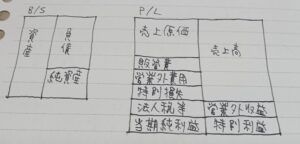 B/S
資産
負債
純資産
P/L
売上原価
売上高
販管費
営業外費用
特別損失
法人税等
営業外収益
当期純利益
特別利益